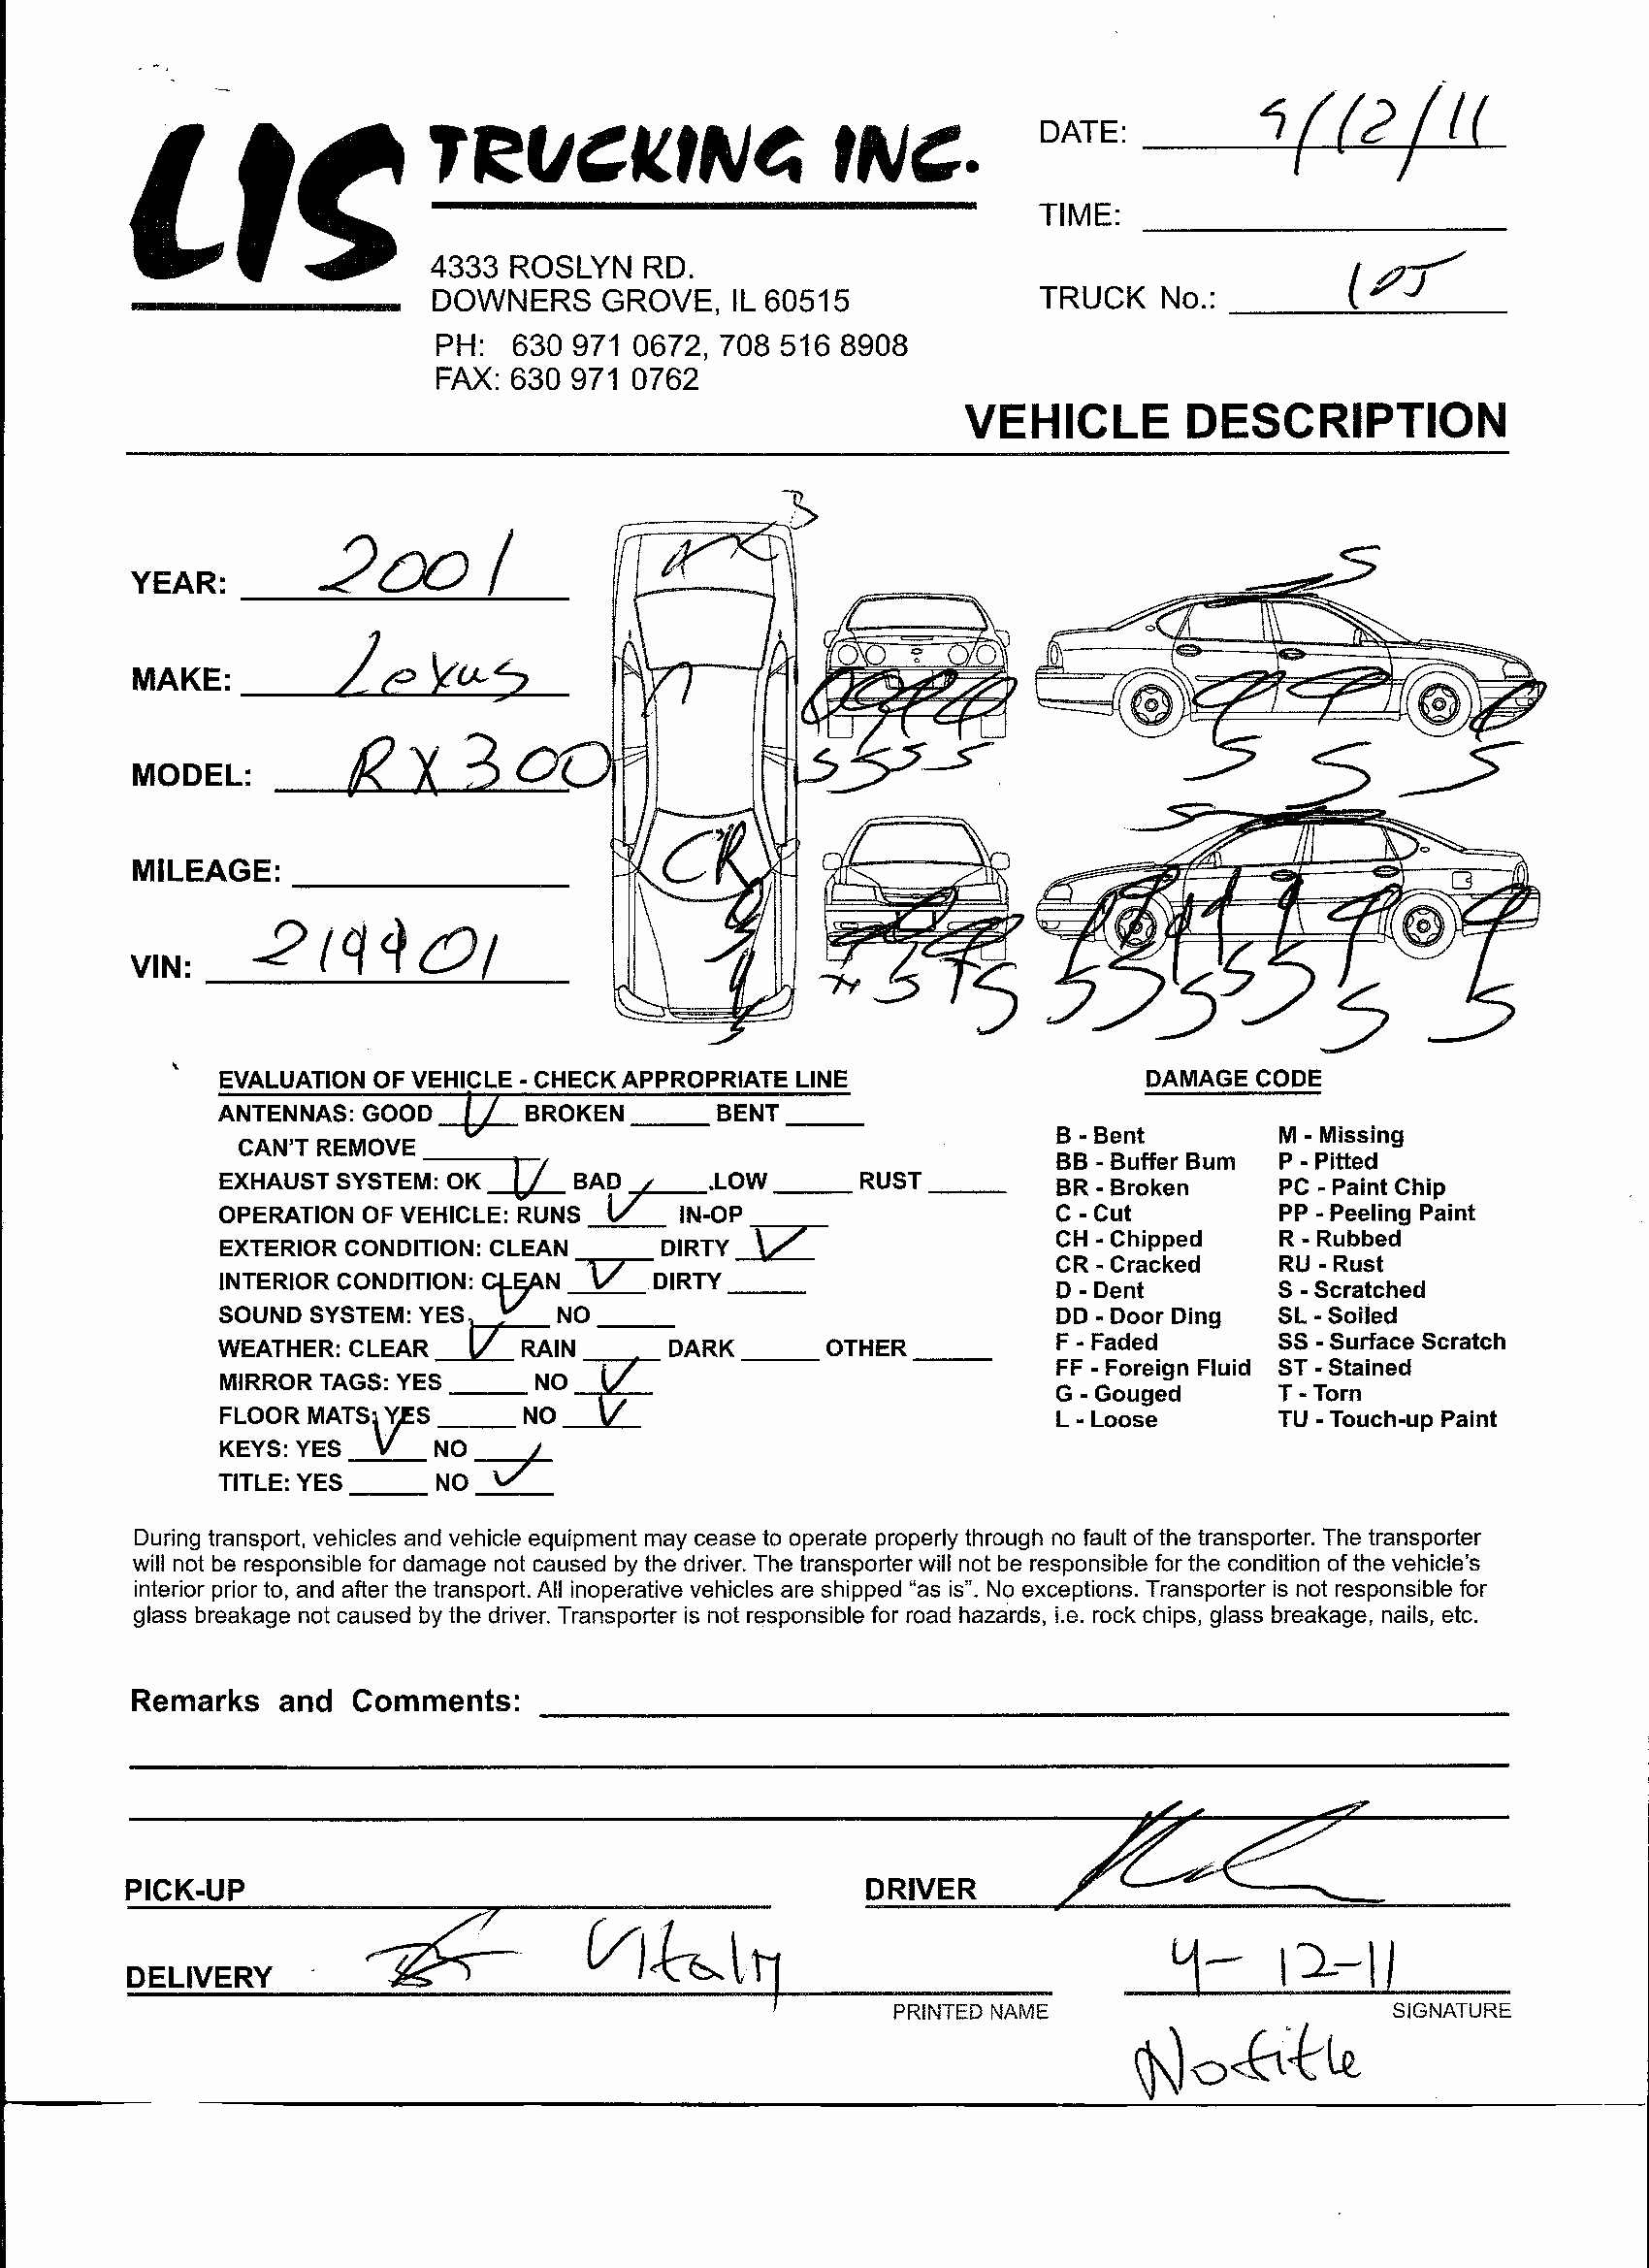 LIS TRUCKING INC.
4333 ROSLYN RD.
DOWNERS GROVE, IL 60515
PH: 630 971 0672, 708 516 8908
FAX: 630 971 0762
DATE: 4/12/11
TIME:
TRUCK No.: 105
VEHICLE DESCRIPTION
YEAR: 2001
MAKE: Lexus
MODEL: RX300
MILEAGE:
VIN: 219901
B
S
S S S S
S S S
CR
S
S S S
S S S S S S S
EVALUATION OF VEHICLE - CHECK APPROPRIATE LINE
ANTENNAS: GOOD BROKEN BENT
CAN'T REMOVE
EXHAUST SYSTEM: OK BAD LOW RUST
OPERATION OF VEHICLE: RUNS IN-OP
EXTERIOR CONDITION: CLEAN DIRTY
INTERIOR CONDITION: CLEAN DIRTY
SOUND SYSTEM: YES NO
WEATHER: CLEAR RAIN DARK OTHER
MIRROR TAGS: YES NO
FLOOR MATS: YES NO
KEYS: YES NO
TITLE: YES NO
DAMAGE CODE
B - Bent M - Missing
BB - Buffer Bum P - Pitted
BR - Broken PC - Paint Chip
C - Cut PP - Peeling Paint
CH - Chipped R - Rubbed
CR - Cracked RU - Rust
D - Dent S - Scratched
DD - Door Ding SL - Soiled
F - Faded SS - Surface Scratch
FF - Foreign Fluid ST - Stained
G - Gouged T - Torn
L - Loose TU - Touch-up Paint
During transport, vehicles and vehicle equipment may cease to operate properly through no fault of the transporter. The transporter
will not be responsible for damage not caused by the driver. The transporter will not be responsible for the condition of the vehicle's
interior prior to, and after the transport. All inoperative vehicles are shipped “as is”. No exceptions. Transporter is not responsible for
glass breakage not caused by the driver. Transporter is not responsible for road hazards, i.e. rock chips, glass breakage, nails, etc.
Remarks and Comments:
PICK-UP DRIVER
DELIVERY Vitaly 4-12-11
PRINTED NAME SIGNATURE
No title